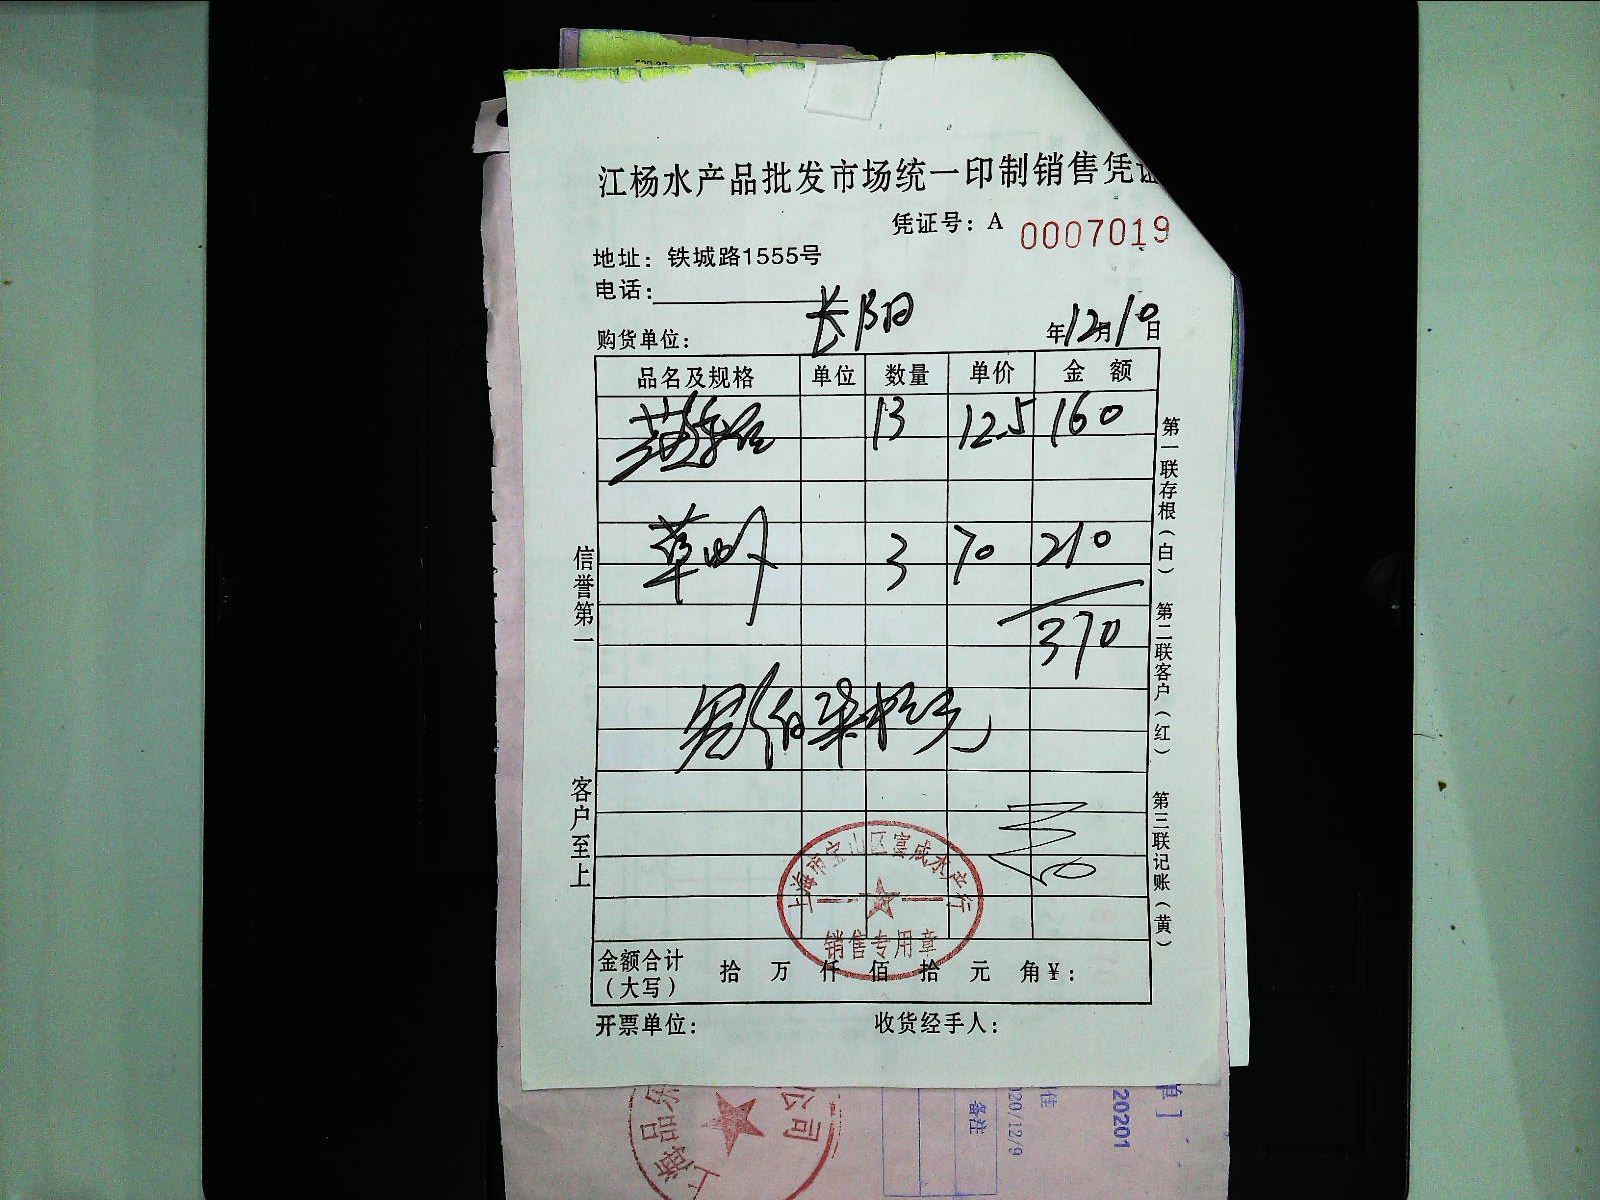 江杨水产品批发市场统一印制销售凭证
凭证号：A 0007019
地址：铁城路1555号
电话：
购货单位： 长阳 年12月10日
品名及规格 单位 数量 单价 金额
13 12.5 160
草虾 3 70 210
370
叁佰柒拾元
信誉第一
客户至上
第一联存根（白）
第二联客户（红）
第三联记账（黄）
上海市宝山区 成水产行
销售专用章
金额合计（大写） 拾 万 仟 佰 拾 元 角￥：
开票单位： 收货经手人：
上海品
公司
备注
20/12/9
佳
20201
单]